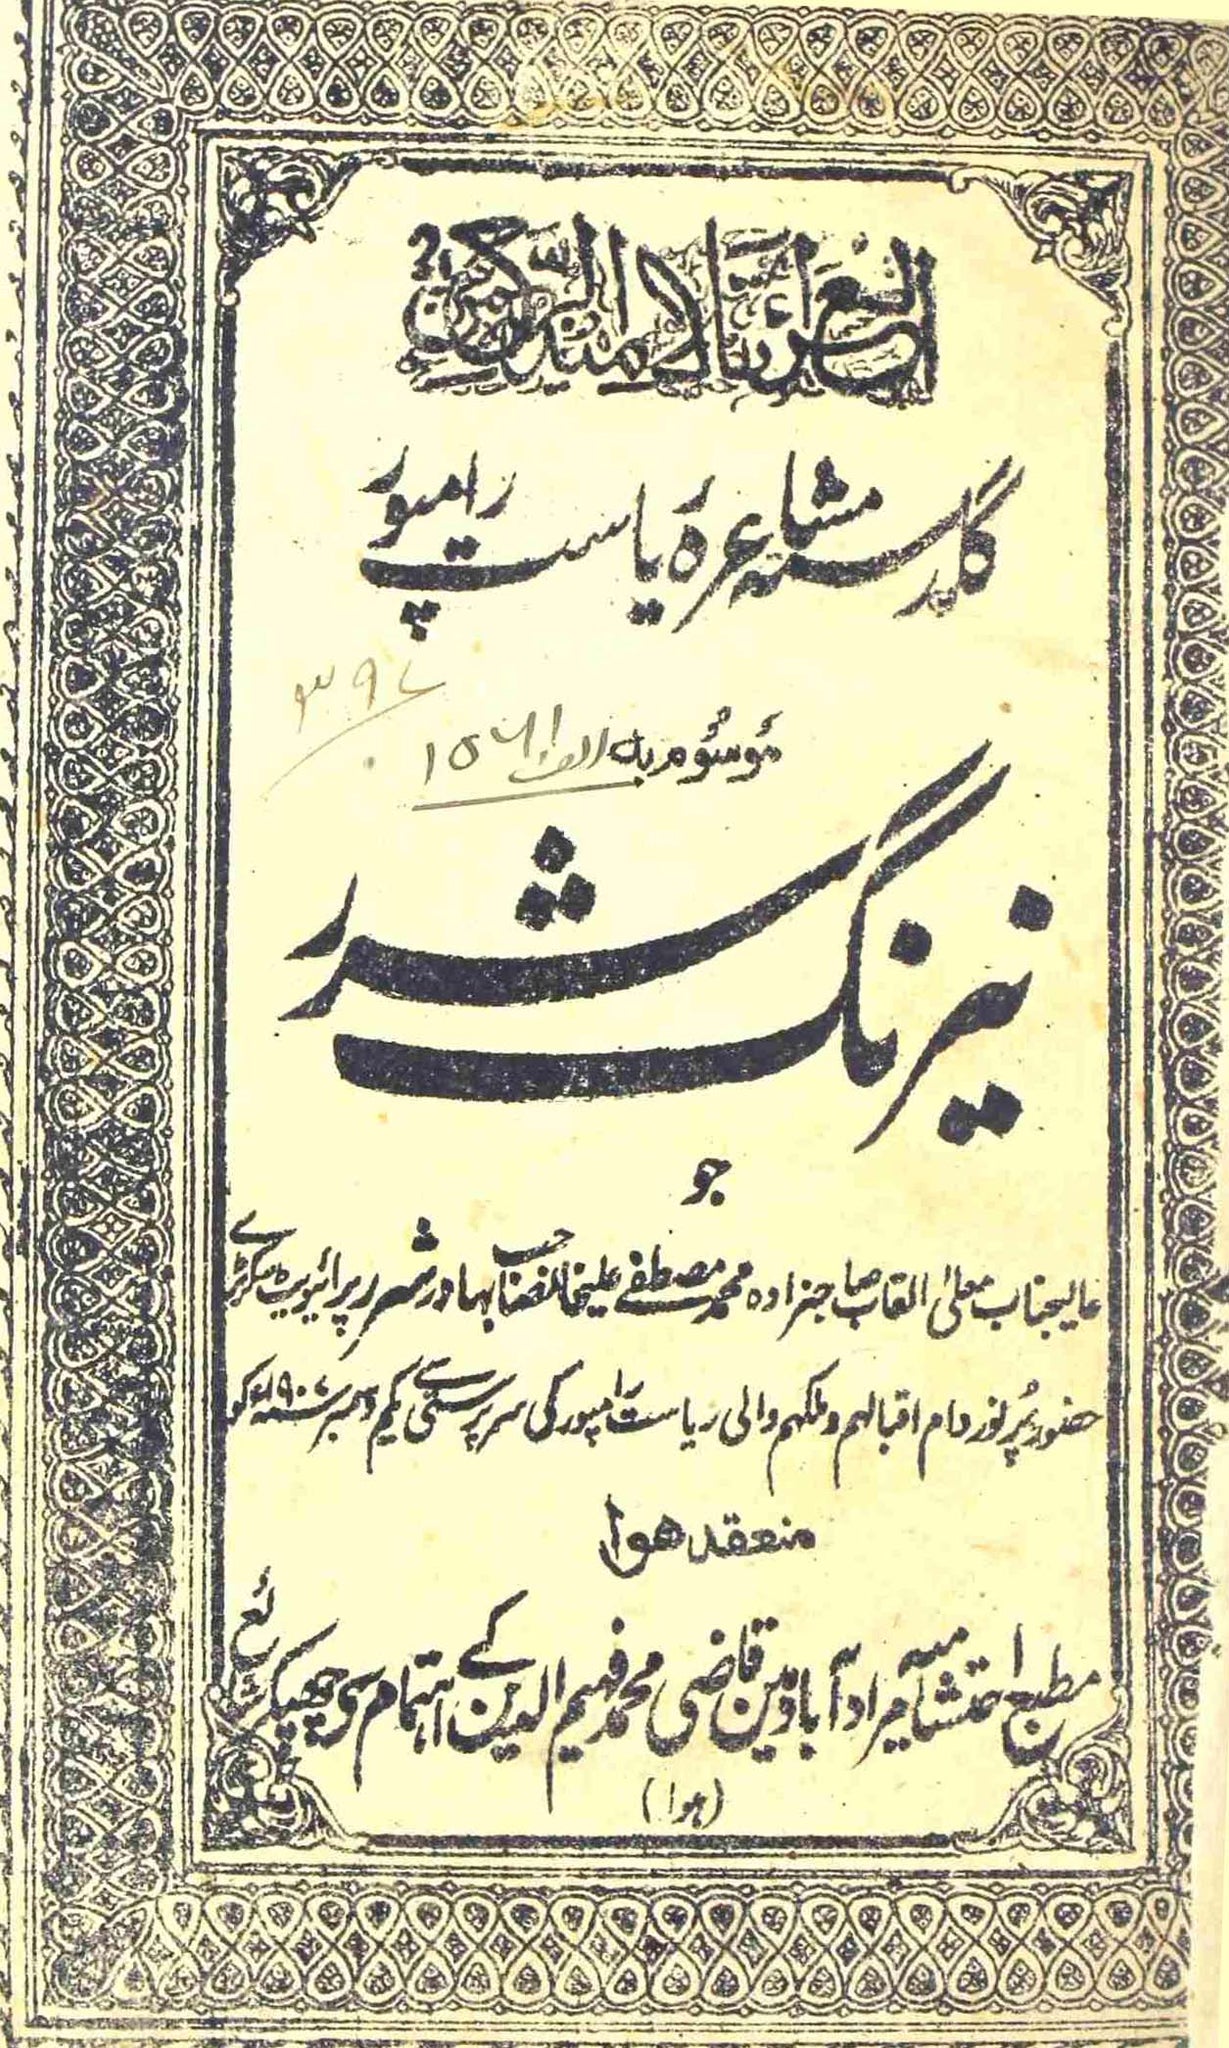 الشعراء تلامیذ الرحمن
گلدستہ مشاعرہ ریاست رامپور
۳۹۷
موسوم بہ
۱۵۶۱
نیرنگ شرر
جو
عالیجناب معلیٰ القاب صاحبزادہ محمد مصطفے علیخانصاحب بہادر شرر پرائیویٹ سکرٹری
حضور پُر نور دام اقبالہم و ملکہم والی ریاست رامپور کی سرپرستی سے یکم دسمبر سنہ ۱۹۰۷ء کو
منعقد ھوا
مطبع احتشامیہ مرادآباد مین قاضی محمد فہیم الدین کے اہتمام سے چھپکر شائع
(ہوا)